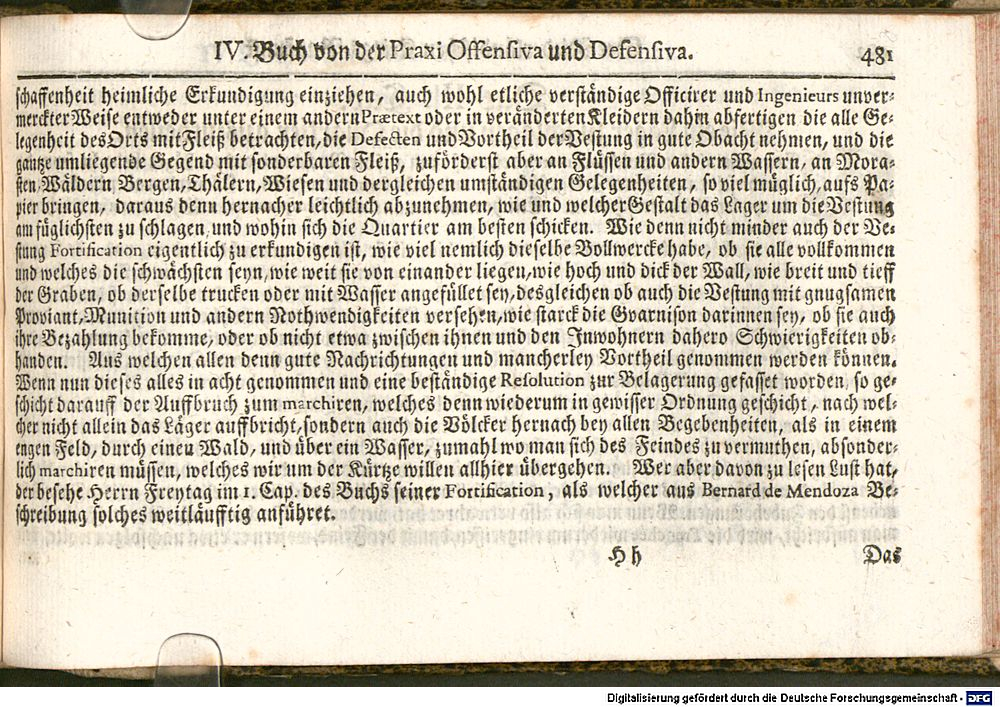 IV. Buch von der Praxi Offensiva und Defensiva. 481
schaffenheit heimliche Erkundigung einziehen, auch wohl etliche verständige Officirer und Ingenieurs unver-
merckter Weise entweder unter einem andern Prætext oder in veränderten Kleidern dahin abfertigen die alle Ge-
legenheit des Orts mit Fleiß betrachten, die Defecten und Vortheil der Vestung in gute Obacht nehmen, und die
gantze umliegende Gegend mit sonderbaren Fleiß, zuförderst aber an Flüssen und andern Wassern, an Mora-
sten, Wäldern, Bergen, Thälern, Wiesen und dergleichen umständigen Gelegenheiten, so viel müglich, aufs Pa-
pier bringen, daraus denn hernacher leichtlich abzunehmen, wie und welcher Gestalt das Lager um die Vestung
am füglichsten zu schlagen, und wohin sich die Quartier am besten schicken. Wie denn nicht minder auch der Ve-
stung Fortification eigentlich zu erkundigen ist, wie viel nemlich dieselbe Bollwercke habe, ob sie alle vollkommen
und welches die schwächsten seyn, wie weit sie von einander liegen, wie hoch und dick der Wall, wie breit und tieff
der Graben, ob derselbe trucken oder mit Wasser angefüllet sey, desgleichen ob auch die Vestung mit gnugsamen
Proviant, Munition und andern Nothwendigkeiten versehen, wie starck die Gvarnison darinnen sey, ob sie auch
ihre Bezahlung bekomme, oder ob nicht etwa zwischen ihnen und den Inwohnern dahero Schwierigkeiten ob-
handen. Aus welchen allen denn gute Nachrichtungen und mancherley Vortheil genommen werden können.
Wenn nun dieses alles in acht genommen und eine beständige Resolution zur Belagerung gefasset worden, so ge-
schicht darauff der Auffbruch zum marchiren, welches denn wiederum in gewisser Ordnung geschicht, nach wel-
cher nicht allein das Läger auffbricht, sondern auch die Völcker hernach bey allen Begebenheiten, als in einem
engen Feld, durch einen Wald, und über ein Wasser, zumahl wo man sich des Feindes zu vermuthen, absonder-
lich marchiren müssen, welches wir um der Kürtze willen allhier übergehen. Wer aber davon zu lesen Lust hat,
der besehe Herrn Freytag im 1. Cap. des Buchs seiner Fortification, als welcher aus Bernard de Mendoza Be-
schreibung solches weitläufftig anführet.
H h Das
Digitalisierung gefördert durch die Deutsche Forschungsgemeinschaft - DFG